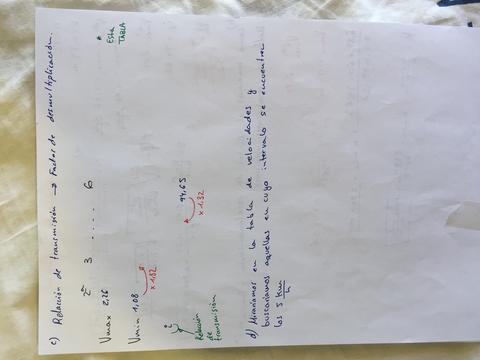 c) Relación de transmisión → Factor de desmultiplicación.
2ª 3 ..... 6
* Esta TABLA
Vmax 2,26
Vmin 1,08
x 1.32
94,65
x 1.32
Relación de transmisión
d) Miraríamos en la tabla de velocidades y
buscaríamos aquellas en cuyo intervalo se encuentren
los 5 Km/h